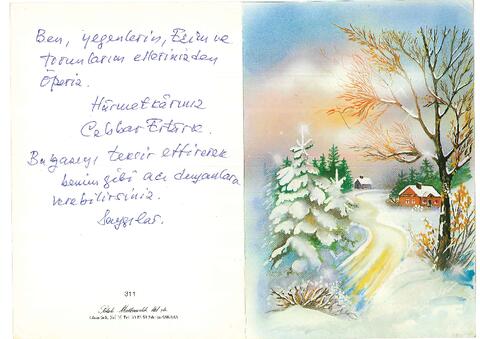 Ben, yegenlerin, Esim ve
torunlarım ellerinizden
Öperiz.
Hürmetkârınız
Cabbar Ertürk.
Bu gazeyi teksir ettirerek
benim gibi acı duyanlara
verebilirsiniz.
Saygılar.
311